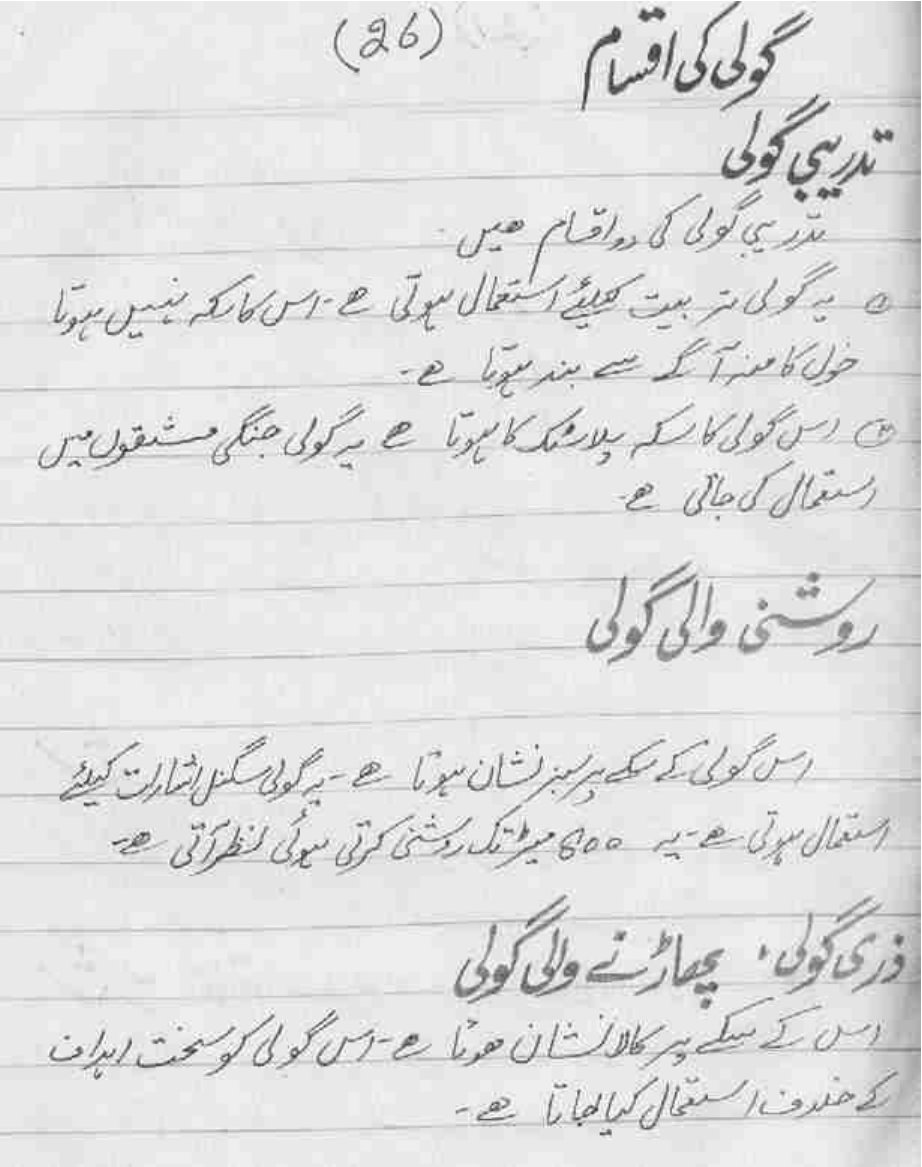 (26)
گولی کی اقسام
تدریبی گولی
تدریبی گولی کی دو اقسام ھیں
① یہ گولی تربیت کیلئے استعمال ہوتی ھے - اس کا سکہ نہیں ہوتا
خول کا منہ آگے سے بند ہوتا ھے-
② اس گولی کا سکہ پلاسٹک کا ہوتا ھے یہ گولی جنگی مشقوں میں
استعمال کی جاتی ھے-
روشنی والی گولی
اس گولی کے سکے پر سبز نشان ہوتا ھے - یہ گولی سگنل اشارات کیلئے
استعمال ہوتی ھے - یہ 600 میٹر تک روشنی کرتی ہوئی نظر آتی ھے-
زرعی گولی، پھاڑنے والی گولی
اس کے سکے پر کالا نشان ھوتا ھے - اس گولی کو سخت اہداف
کے خلاف استعمال کیا جاتا ھے-